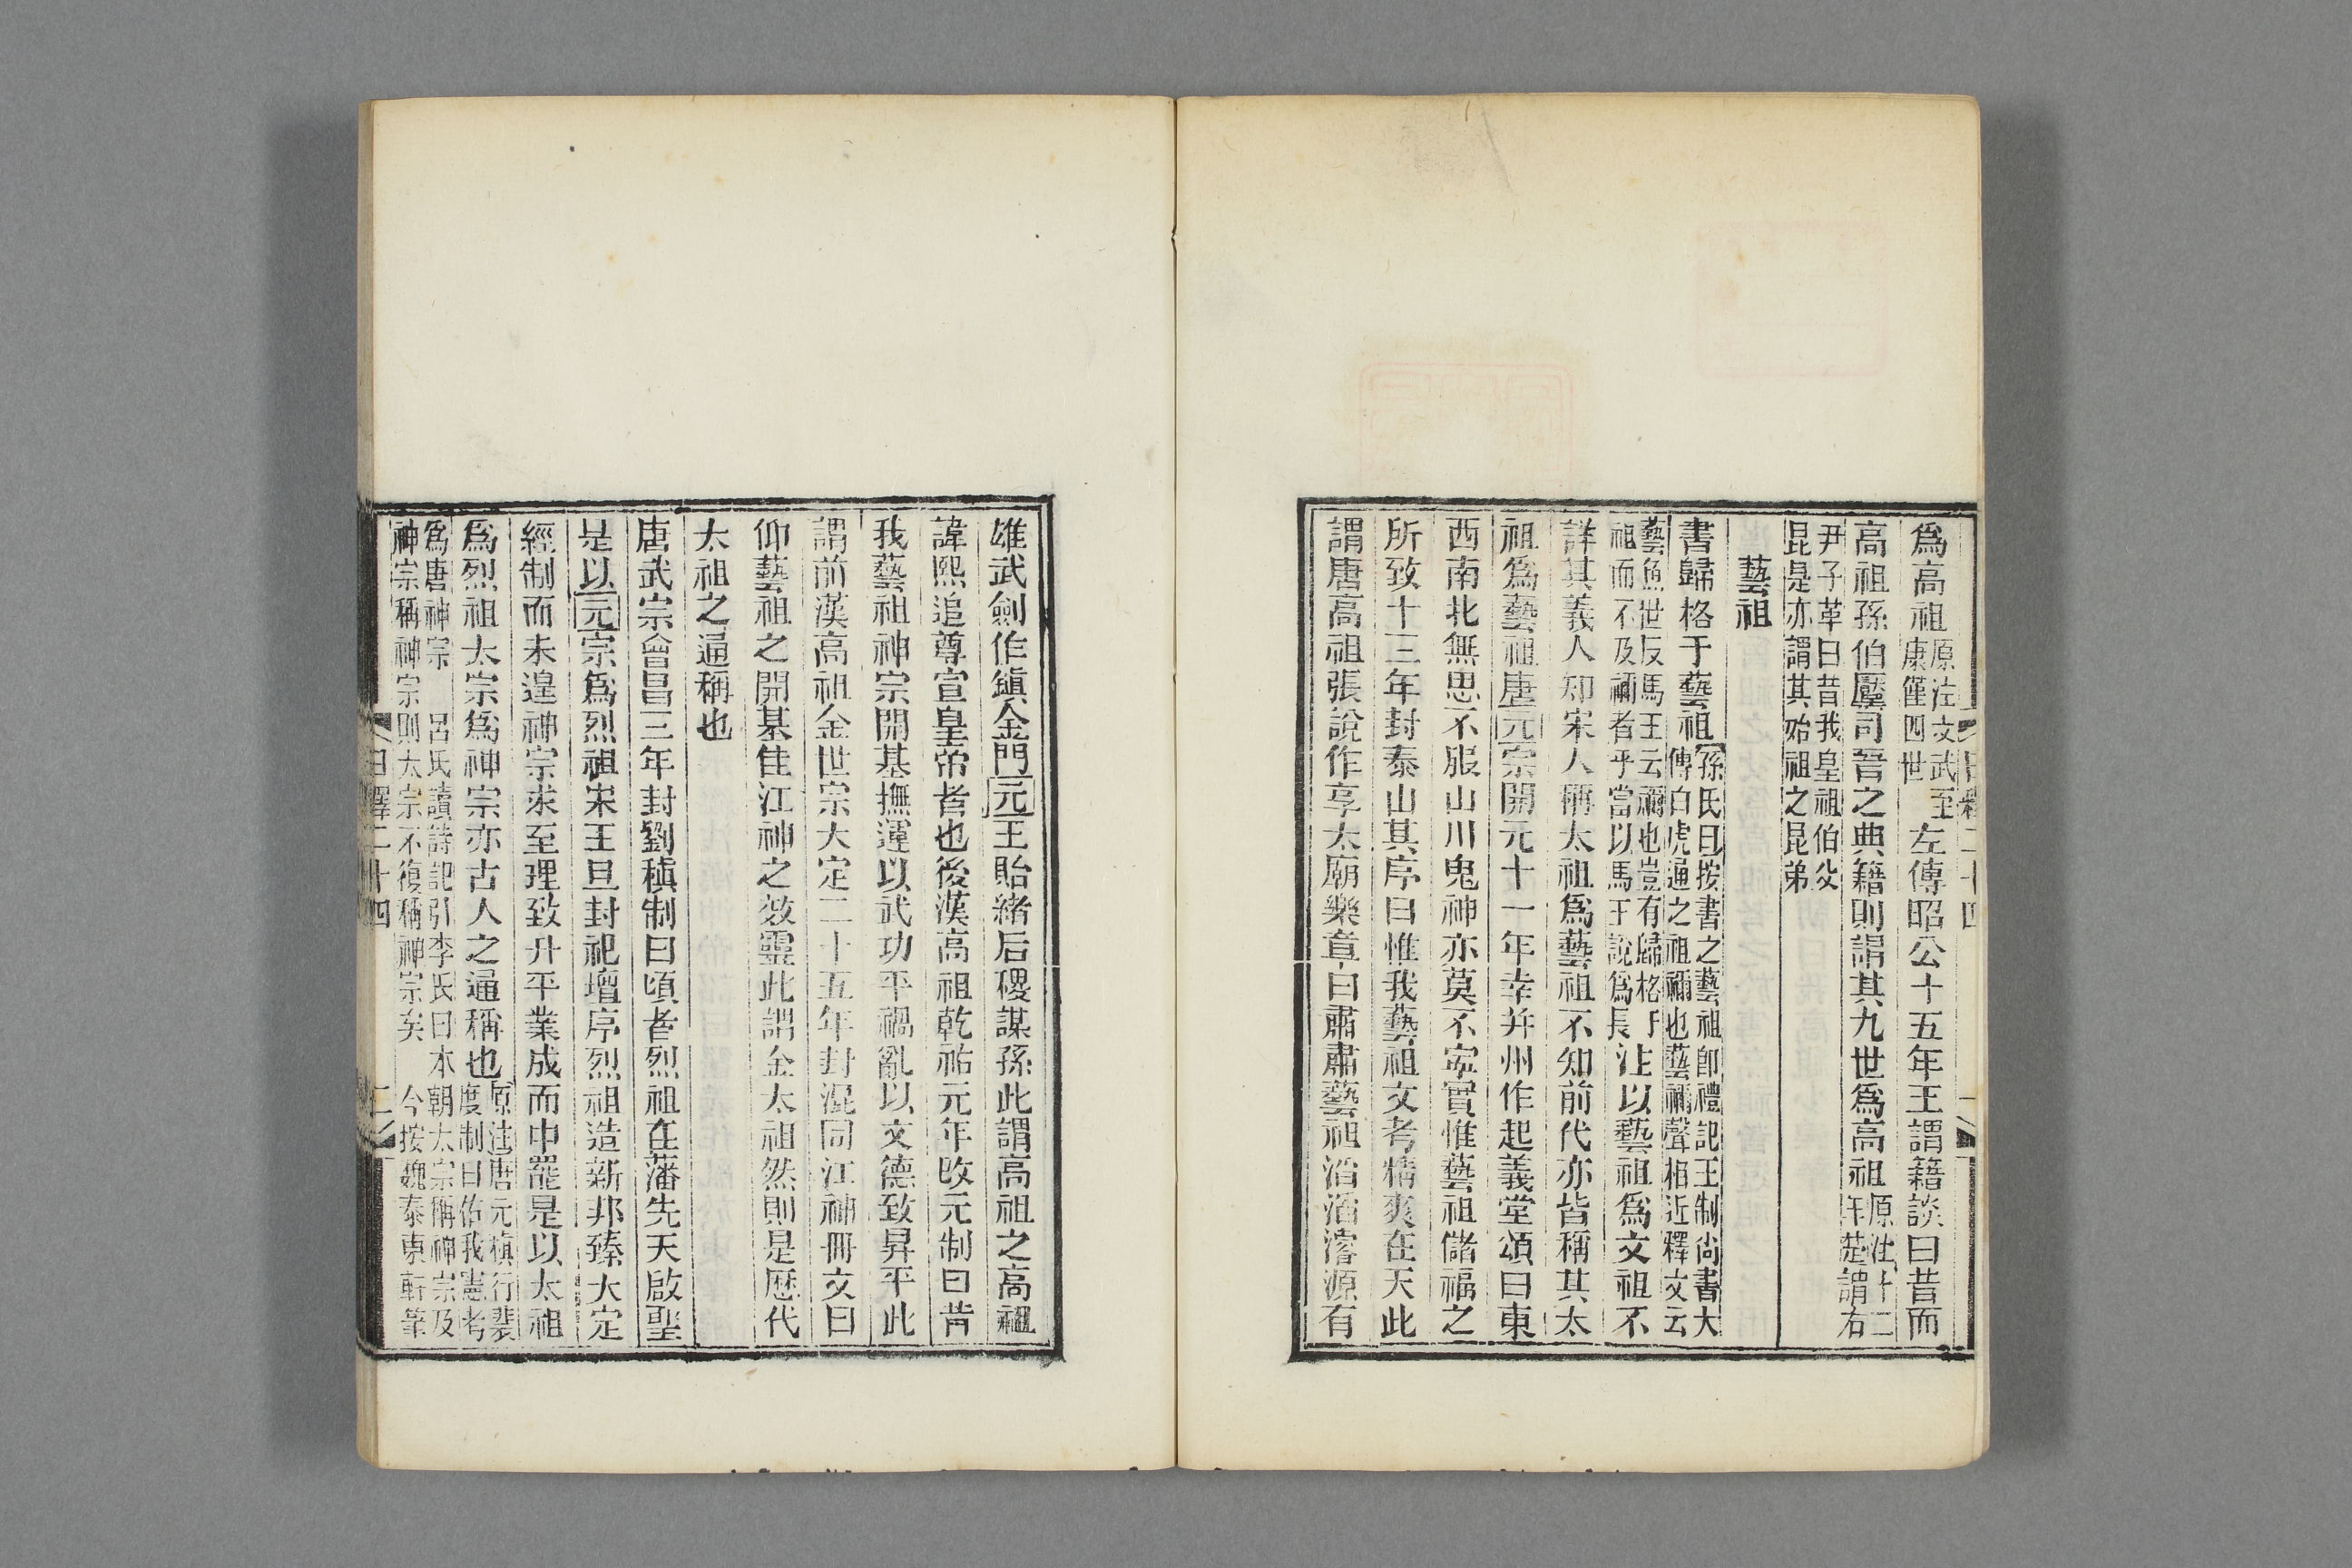 爲高祖原注文武至康僅四世左傳昭公十五年王謂籍談曰昔而
高祖孫伯黶司晉之典籍則謂其九世爲高祖原注十二年楚謂右
尹子革曰昔我皇祖伯父昆是亦謂其始祖之昆弟
藝祖
書歸格于藝祖孫氏曰按書之藝祖卽禮記王制尙書大傳白虎通之祖禰也藝禰聲相近釋文云
藝魚世反馬王云禰也豈有歸格于祖而不及禰者乎當以馬王說爲長注以藝祖爲文祖不
詳其義人知宋人稱太祖爲藝祖不知前代亦皆稱其太
祖爲藝祖唐元宗開元十一年幸并州作起義堂頌曰東
西南北無思不服山川鬼神亦莫不寧實惟藝祖儲福之
所致十三年封泰山其序曰惟我藝祖文考精爽在天此
謂唐高祖張說作享太廟樂章曰肅肅藝祖滔滔濬源有
雄武劍作鎮金門元王貽緒后稷謀孫此謂高祖之高祖
諱熙追尊宣皇帝者也後漢高祖乾祐元年改元制曰昔
我藝祖神宗開基撫運以武功平禍亂以文德致昇平此
謂前漢高祖金世宗大定二十五年封混同江神冊文曰
仰藝祖之開基佳江神之效靈此謂金太祖然則是歷代
太祖之通稱也
唐武宗會昌三年封劉稹制曰頃者烈祖在藩先天啟聖
是以元宗爲烈祖宋王旦封祀壇序烈祖造新邦臻大定
經制而未遑神宗求至理致升平業成而中罷是以太祖
爲烈祖太宗爲神宗亦古人之通稱也原注唐元稹行裴度制曰佑我憲考
爲唐神宗 呂氏讀詩記引李氏曰本朝太宗稱神宗及神宗稱神宗則太宗不復稱神宗矣 今按魏泰東軒筆
日釋二十四 二